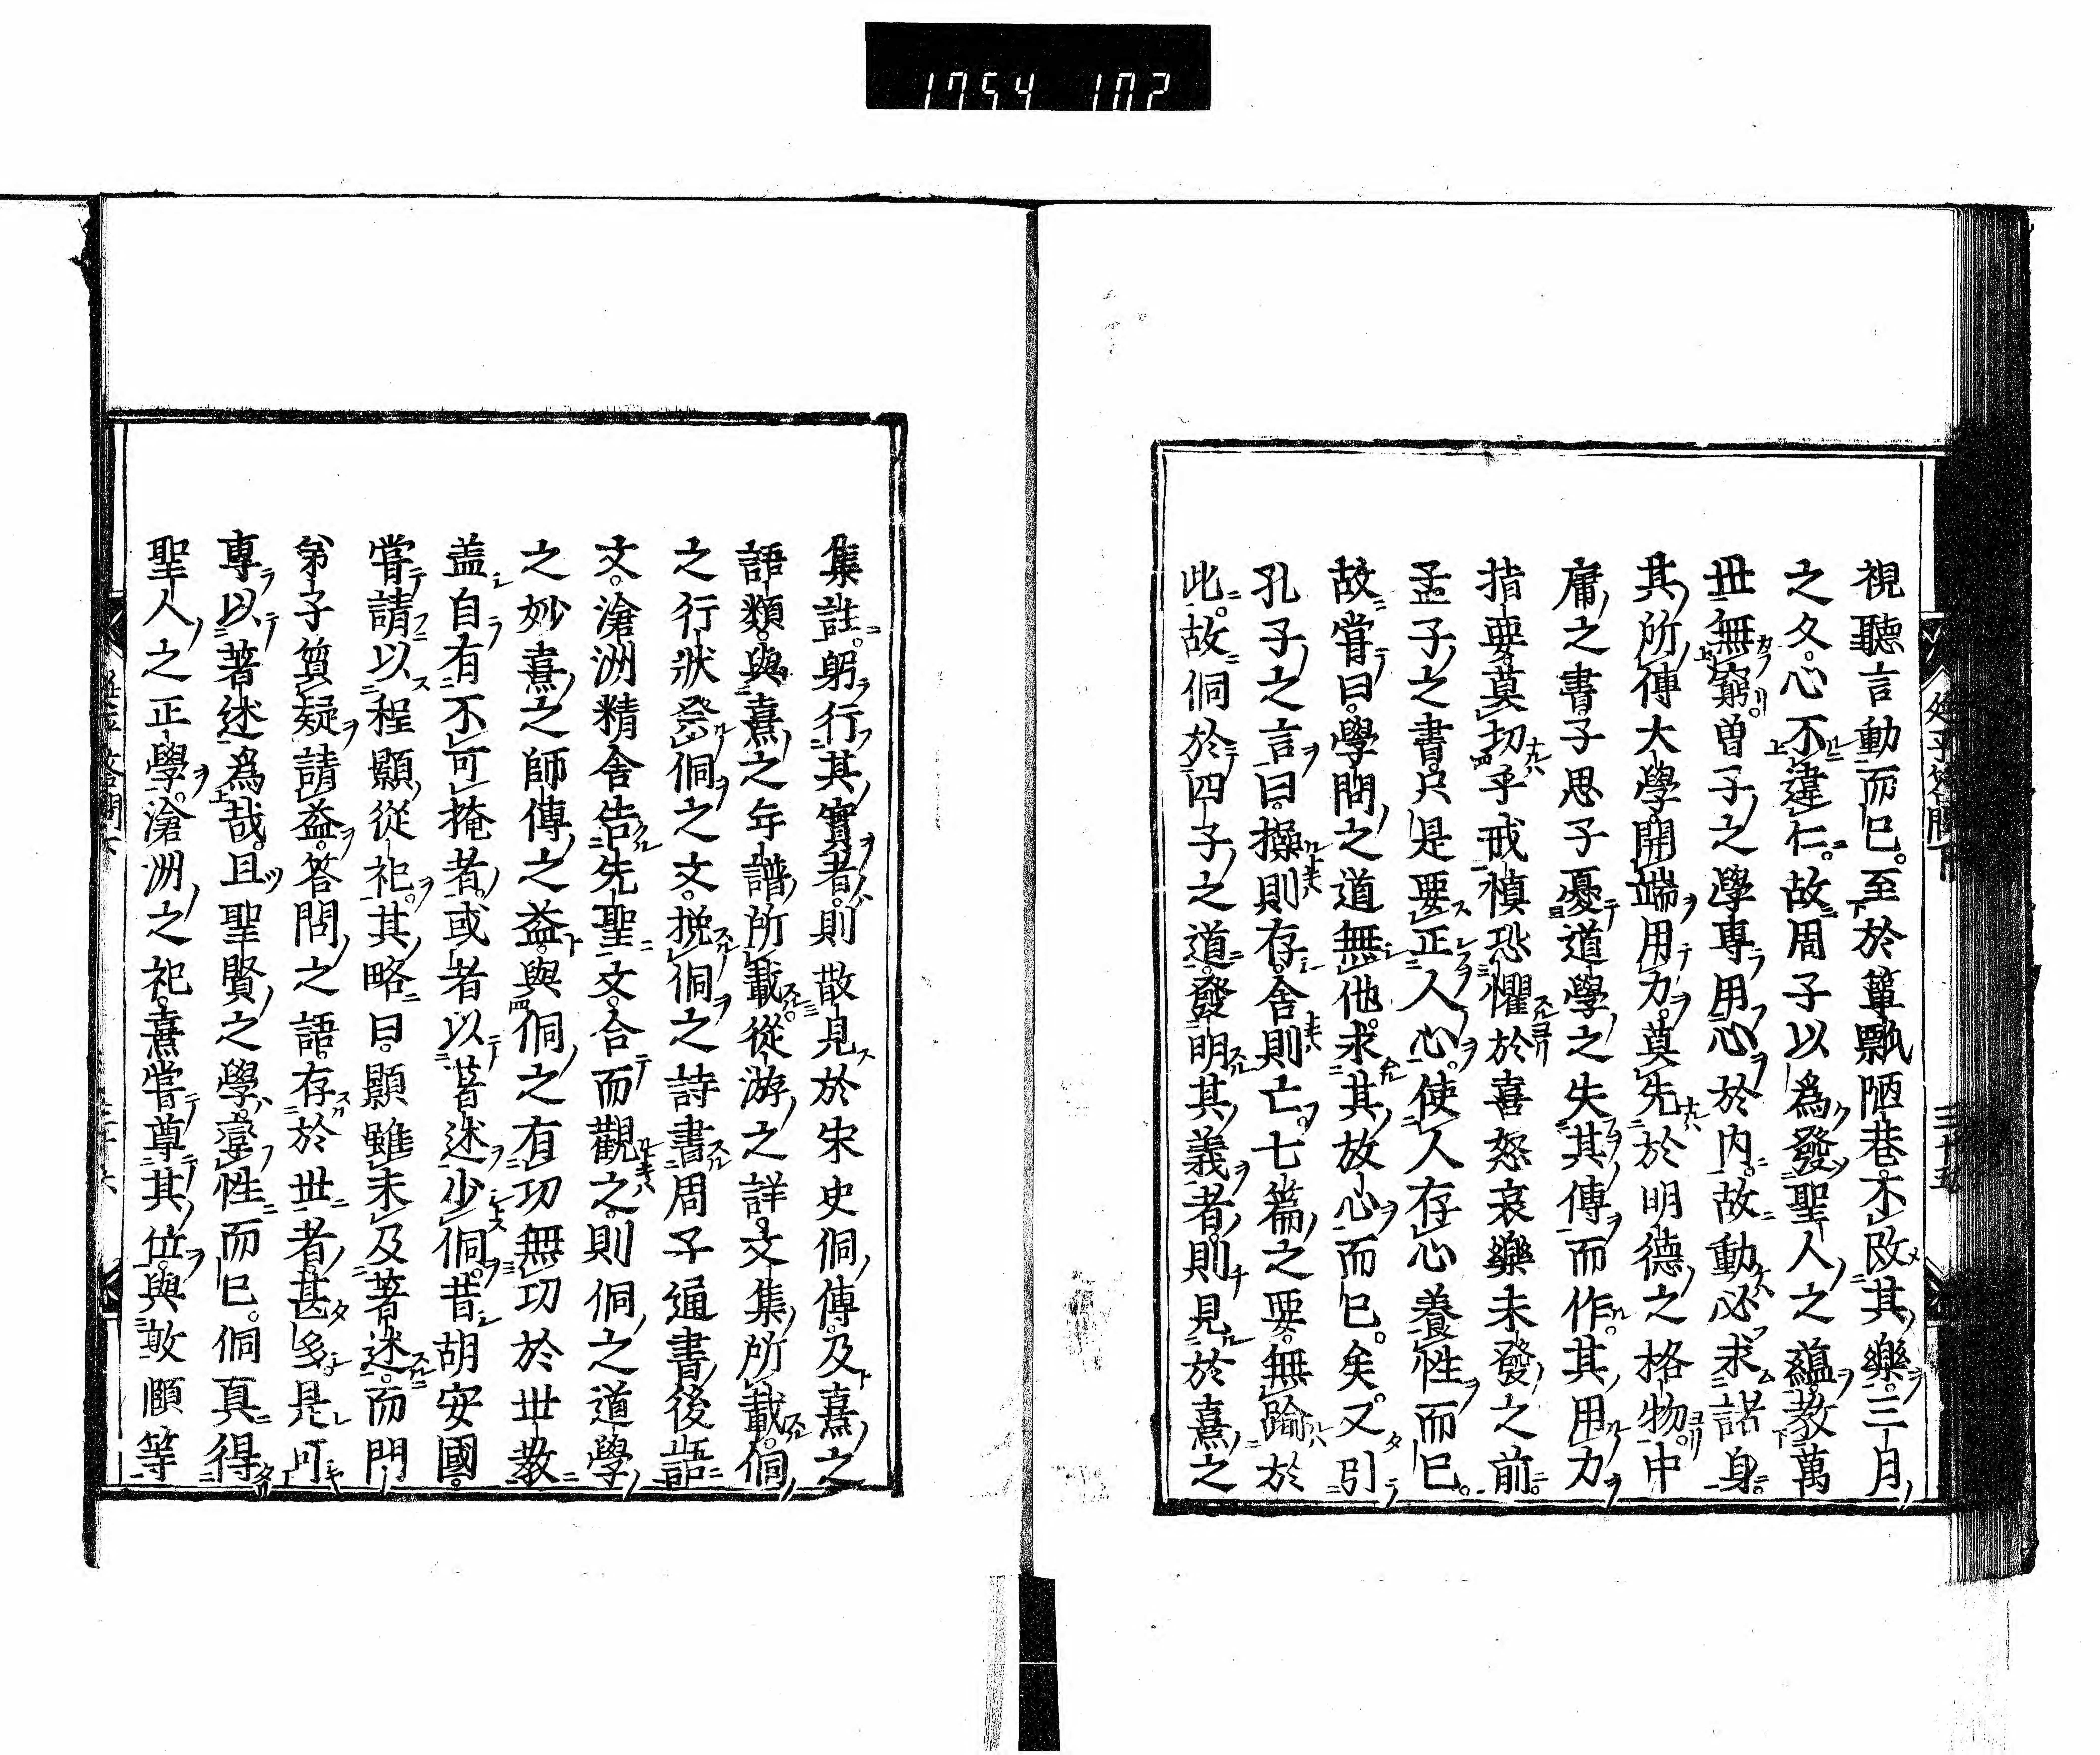 1754 102
視聽言動而已。至於簞瓢陋巷。不改其樂。三月
之久。心不違仁。故周子以爲發聖人之蘊。教萬
世無窮。曽子之學專用心於内。故動必求諸身。
其所傳大學。開端用力。莫先於明德之格物。中
庸之書。子思子憂道學之失其傳而作。其用力
指要。莫切乎戒慎恐懼於喜怒哀樂未發之前。
孟子之書。只是要正人心。使人存心養性而已。
故嘗曰。學問之道無他。求其放心而已。矣。又引
孔子之言曰。操則存。舍則亡。七篇之要。無踰於
此。故侗於四子之道。發明其義者。則見於熹之
集註。躬行其實者。則散見於宋史侗傳。及熹之
語類。與熹之年譜所載。從游之詳。文集所載。侗
之行狀。祭侗之文。挽侗之詩。書周子通書後語
文。滄洲精舍告先聖文。合而觀之。則侗之道學
之妙。熹之師傳之益。與侗之有功無功於世教。
盖自有不可掩者。或者以著述少侗。昔胡安國。
嘗請以程顥從祀。其略曰。顥雖未及著述。而門
弟子質疑請益。答問之語。存於世者。甚多。是可
專以著述爲哉。且聖賢之學。盡性而已。侗真得
聖人之正學。滄洲之祀。熹嘗尊其位。與敦頤等
延平答問下
三十五
延平答問下
三十六